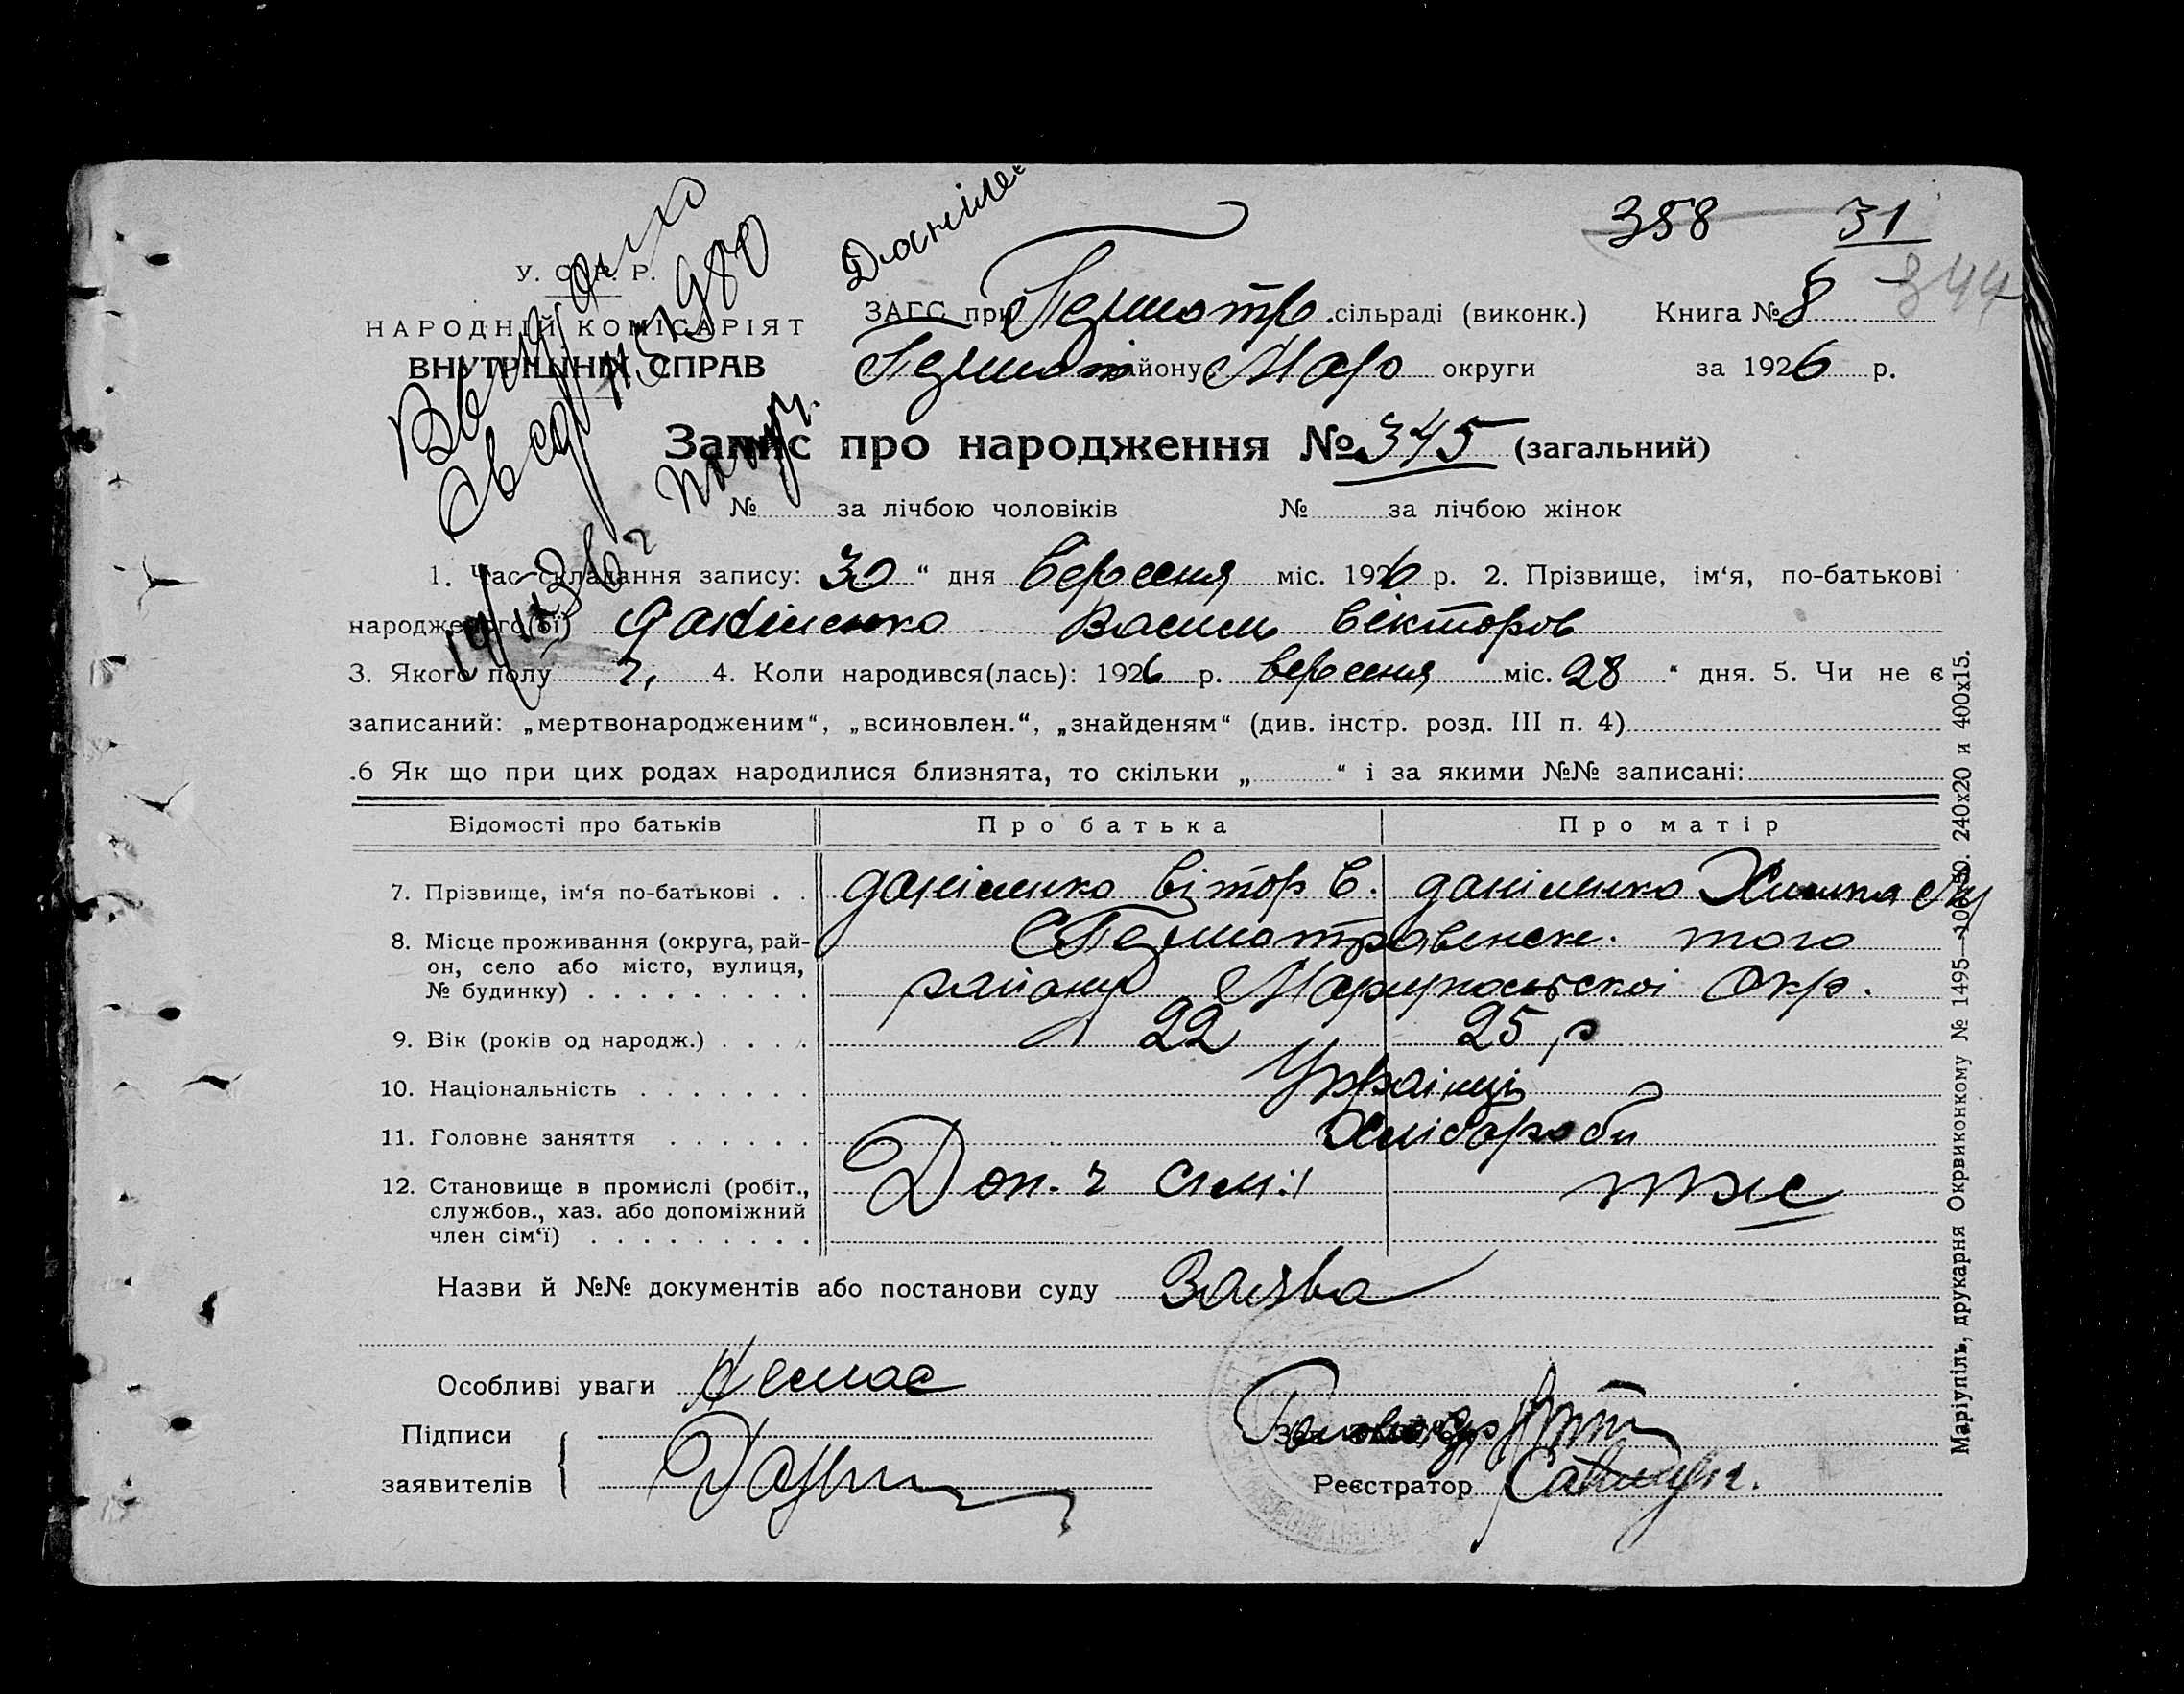 358 31
344
Даніле
У. С. Р. Р.
НАРОДНІЙ КОМІСАРІЯТ
ВНУТРІШНІХ СПРАВ
Выдано
свед №
980
ЗАГС при Першотр. сільраді (виконк.) Книга № 8
Першот району Мар округи за 1926 р.
Запис про народження № 345 (загальний)
№ за лічбою чоловіків № за лічбою жінок
1. Час складання запису: 30 “ дня вересеня міс. 1926 р. 2. Прізвище, ім‘я, по-батькові
народженого(ої) Даніленко Василь Вікторов
3. Якого полу ч, 4. Коли народився(лась): 1926 р. вересеня міс. 28 “ дня. 5. Чи не є
записаний: „мертвонародженим“, „всиновлен.“, „знайденям“ (див. інстр. розд. III п. 4)
.6 Як що при цих родах народилися близнята, то скільки „ “ і за якими №№ записані:
Відомості про батьків Про батька Про матір
7. Прізвище, ім‘я по-батькові . . даніленко Віктор В. даніленко
8. Місце проживання (округа, рай-
он, село або місто, вулиця,
№ будинку) . . . . . . . . .
С Першотравенск. того
району Маріупольскоі Окр.
9. Вік (років од народж.) . . . . 22 25 р
10. Національність . . . . . . . Украінці
11. Головне заняття . . . . . . Хлібороби
12. Становище в промислі (робіт.,
службов., хаз. або допоміжний
член сім‘ї) . . . . . . . . .
Доп. ч сімі теж
Назви й №№ документів або постанови суду Заява
Особливі уваги Немає
Підписи
заявителів
Реєстратор
Маріупіль, друкарня Окрвиконкому № 1495— 240х20 и 400х15.